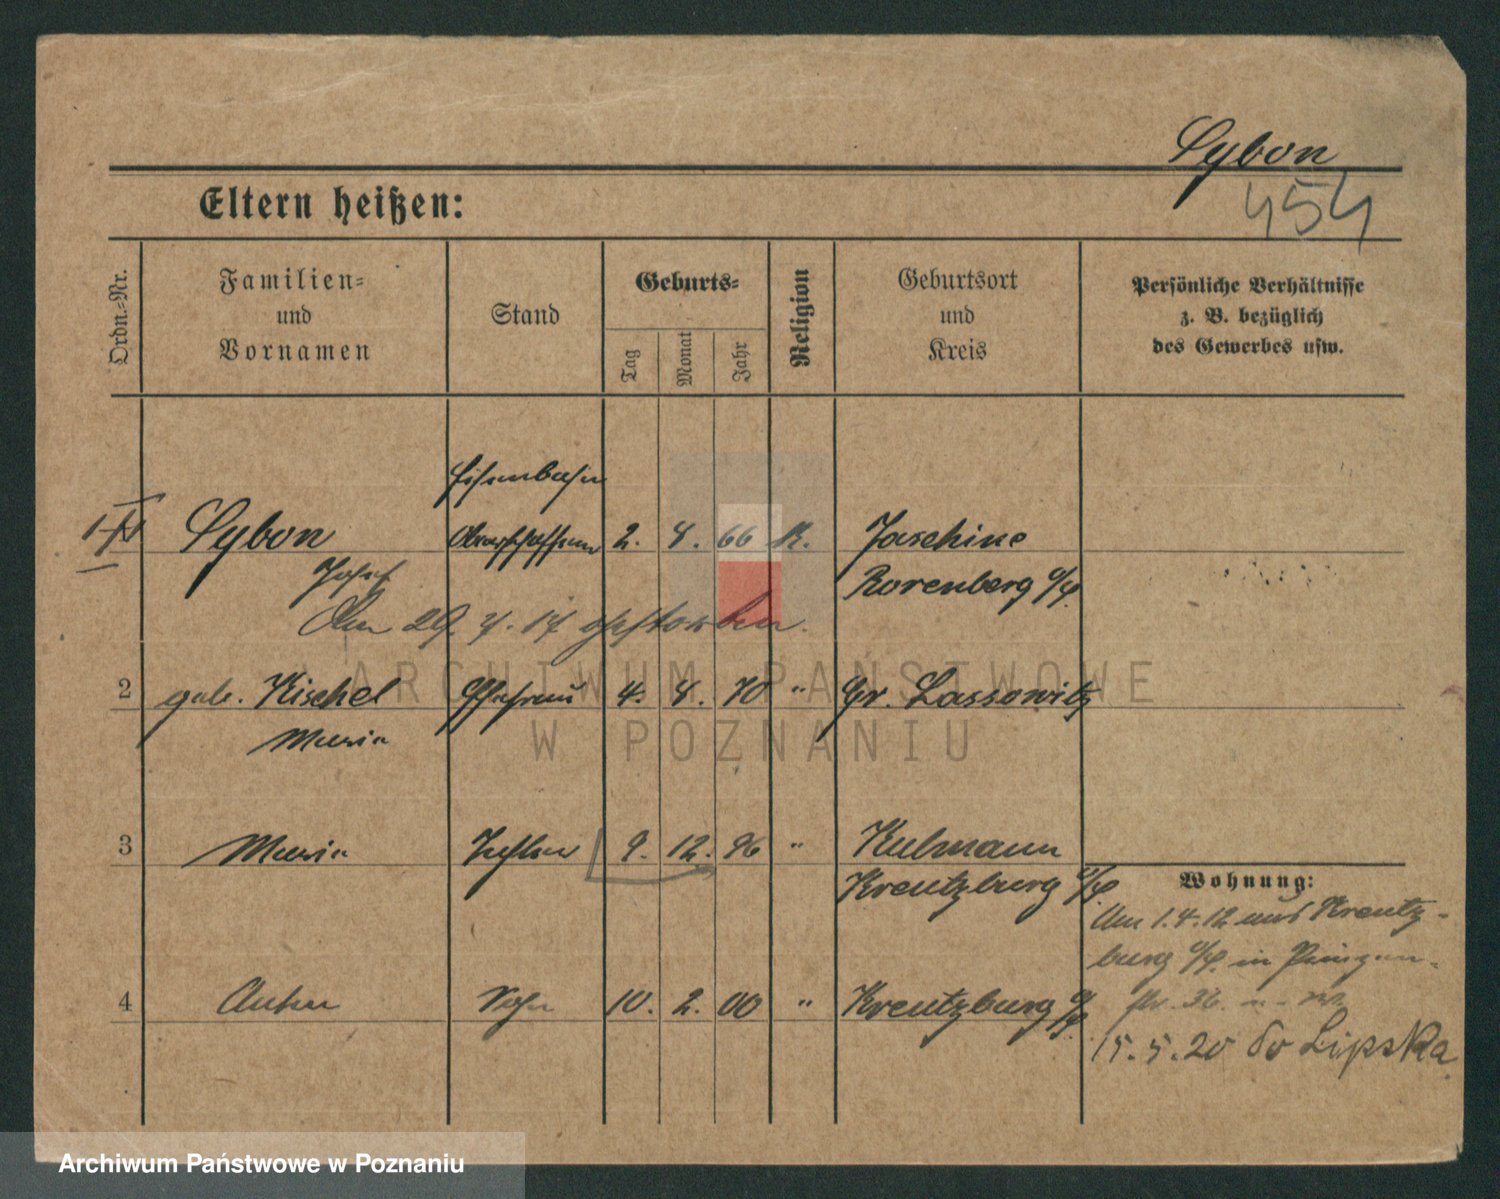 Cybon
454
Eltern heißen:
Ordn.-Nr.
Familien- und Vornamen
Stand
Geburts-
Tag
Monat
Jahr
Religion
Geburtsort und Kreis
Persönliche Verhältnisse z. B. bezüglich des Gewerbes usw.
Eisenbahn
Cybon 2. 8. 66 K. Jaschine
Josef Rosenberg O/S.
Am 29. 7. 17 gestorben.
2 geb. Kischel Ehefrau 4. 8. 70 " Gr. Lassowitz
Maria
3 Maria Tochter 9. 12. 96 " Kulmann
Kreutzburg O/S.
Wohnung:
Am 1.4.12 aus Kreutz-
burg O/S. in
4 Sohn 10. 2. 00 " Kreutzburg O/S.
36
15. 5. 20 do Lipska
ARCHIWUM PAŃSTWOWE
W POZNANIU
Archiwum Państwowe w Poznaniu